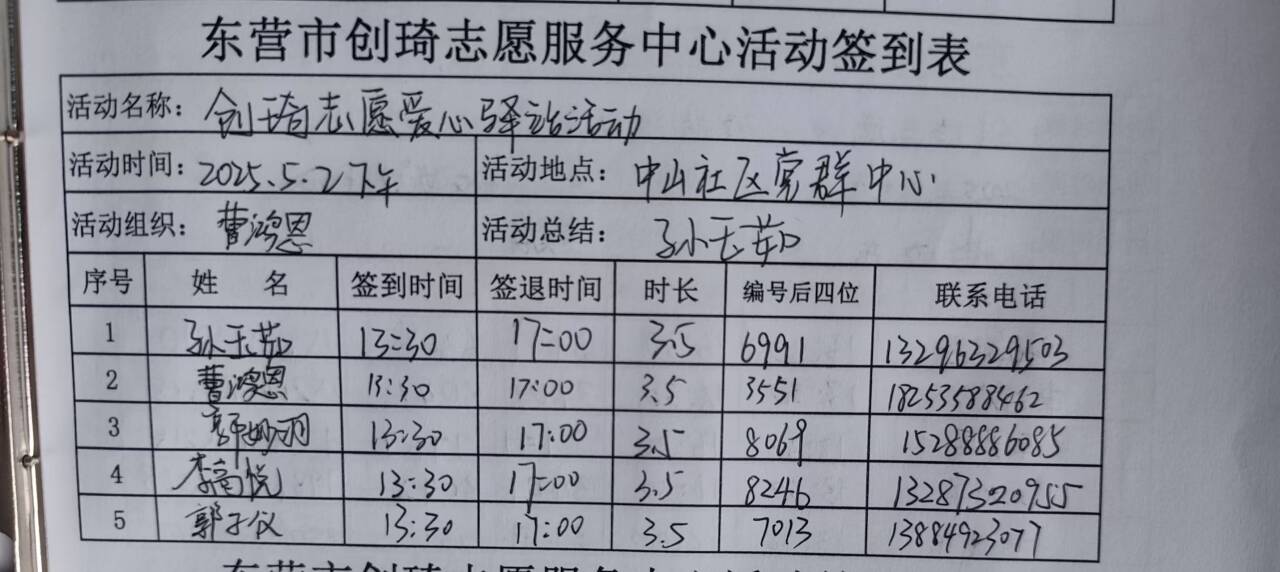 东营市创琦志愿服务中心活动签到表
活动名称： 创琦志愿爱心驿站活动
活动时间：2025.5.2下午 活动地点： 中山社区党群中心
活动组织： 曹鸿恩 活动总结： 孙玉茹
序号 姓 名 签到时间 签退时间 时长 编号后四位 联系电话
1 孙玉茹 13:30 17:00 3.5 6991 13296329503
2 曹鸿恩 13:30 17:00 3.5 3551 18253588462
3 13:30 17:00 3.5 8069 15288886085
4 李富悦 13:30 17:00 3.5 8246 13287320955
5 郭子仪 13:30 17:00 3.5 7013 13884923077
东营市创琦志愿服务中心活动签到表